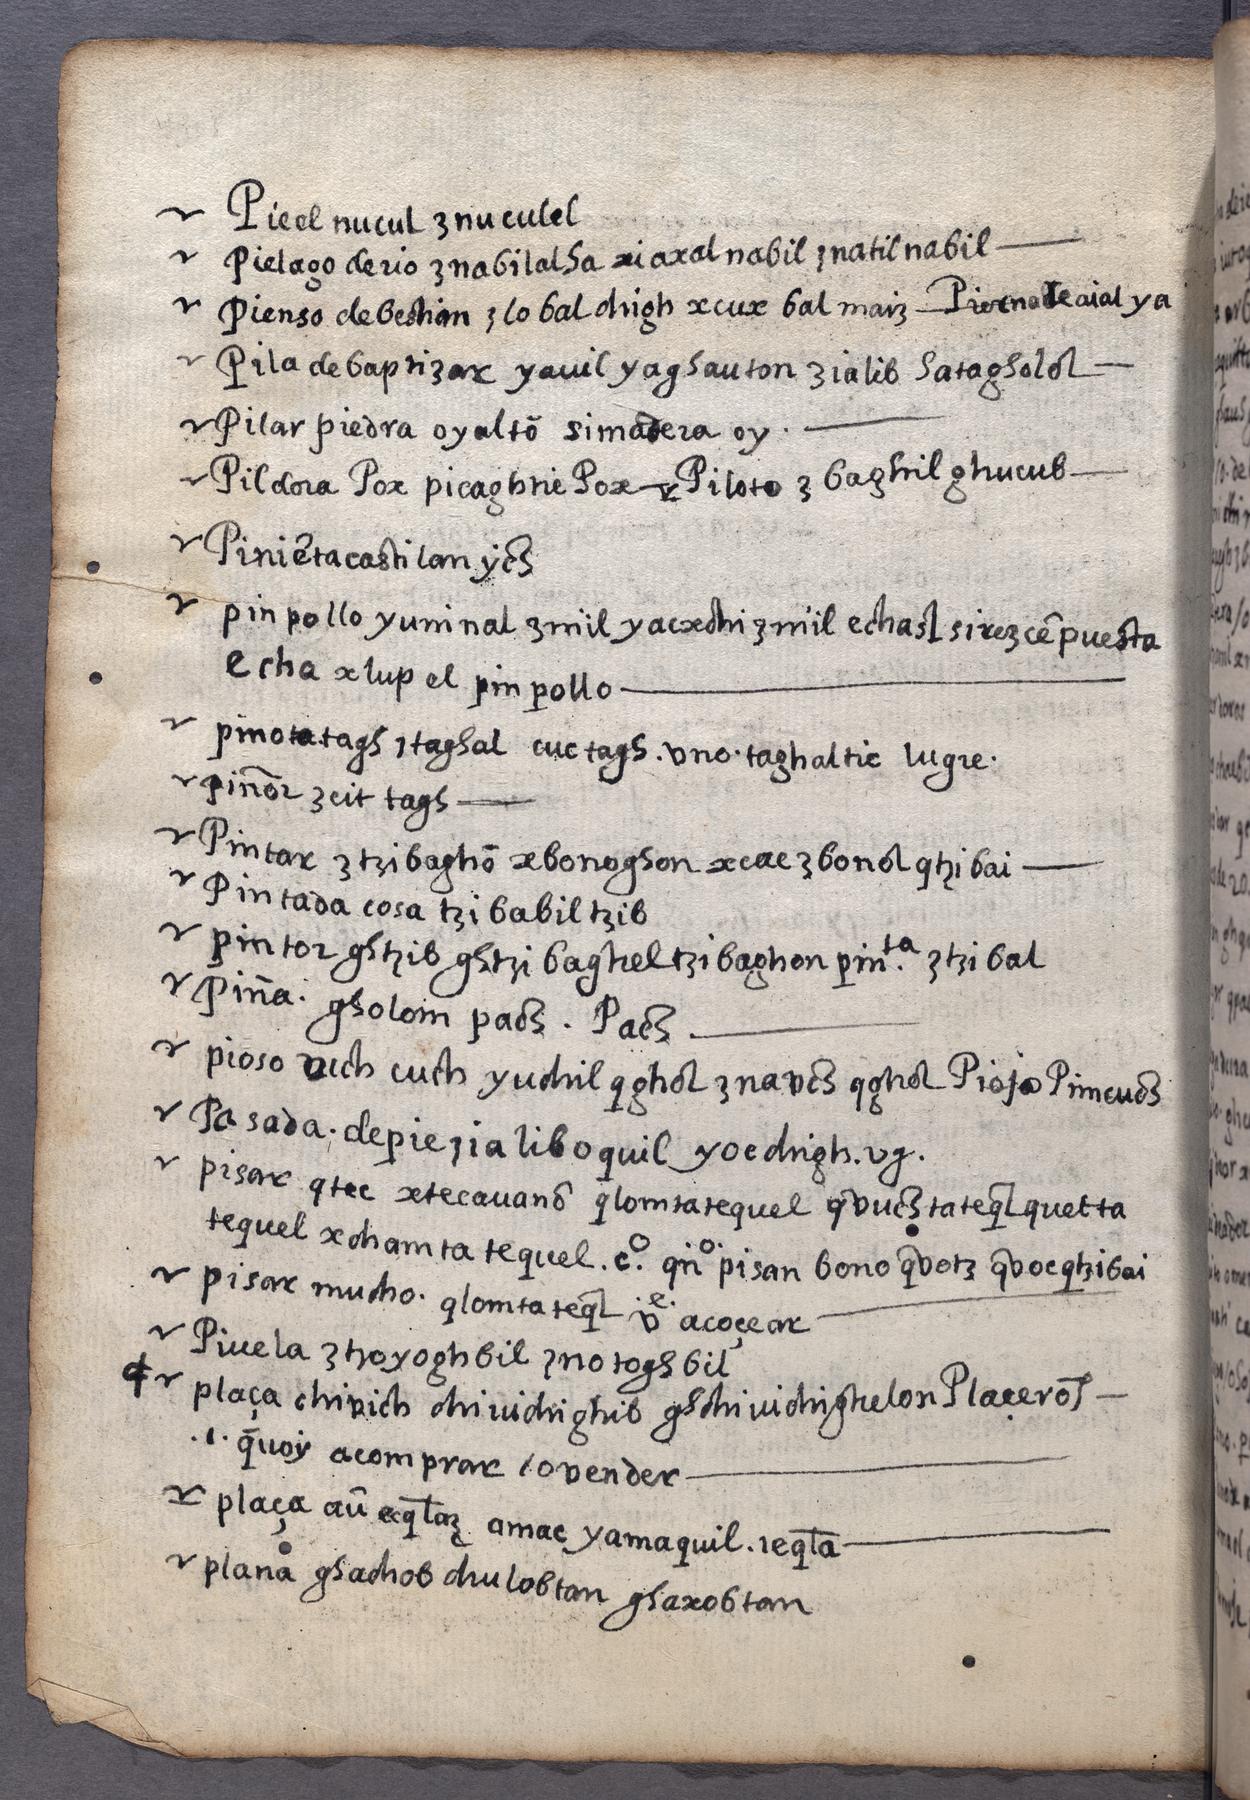 Pie el nucul ꜫ nuculel
Pielago de rio ꜫ nabilalha xiaxal nabil ꜫ natil nabil
Pienso de bestian ꜫ lo bal chigh xcux bal maiz
Pila de baptizar yauil yaghauton ꜫ ialib hatagholol
Pilar piedra oyaltō si madera oy.
Pildora Pox picaghtic Pox Piloto ꜫ baghil ghucub
Piniēta castilan ych
pinpollo yuninal ꜫ niil yacxchi ꜫ niil echal si rezcē puesta
echa xlup el pinpollo
pino tatagh ꜫ taghal cuc tagh. vno. taghaltic lugre.
piñor ꜫ cit tagh
Pintar ꜫ tzibaghō xbonoghon xcac ꜫ bonol qtzibai
Pintada cosa tzibabil tzib
pintor ghtzib ghtzibaghel tzibaghon pin.ta ꜫ tzibal
Piña. gholom pach. Pach
pioso uch cuch yuchil qghol ꜫ na vch qghol Piojo Pimcuch
Pasada. de pie ꜫ ialib oquil yoc chigh. vg.
pisar qtec xtecauanō qlomtatequel qvuch tateql quetta
tequel xchamta tequel. co. qno pisan bono qvotz qvoc qtzibai
pisar mucho. qlomtateql ve. acoçear
Piuela ꜫ tzoyoghbil ꜫ notoghbil
plaça chiuich chiuichighib ghchiuichighelon Plaçerol
.1. quoy acomprar / o vender
plaça amac yamaquil. reqta
plana ghachob chulobtan ghaxobtan